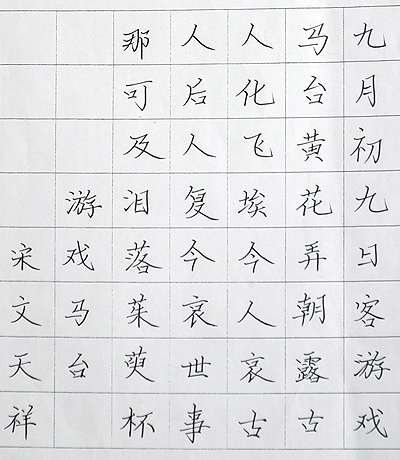 九月初九日客游戏
马台黄花弄朝露古
人化飞埃今人哀古
人后人复今哀世事
那可及泪落茱萸杯
游戏马台
宋文天祥